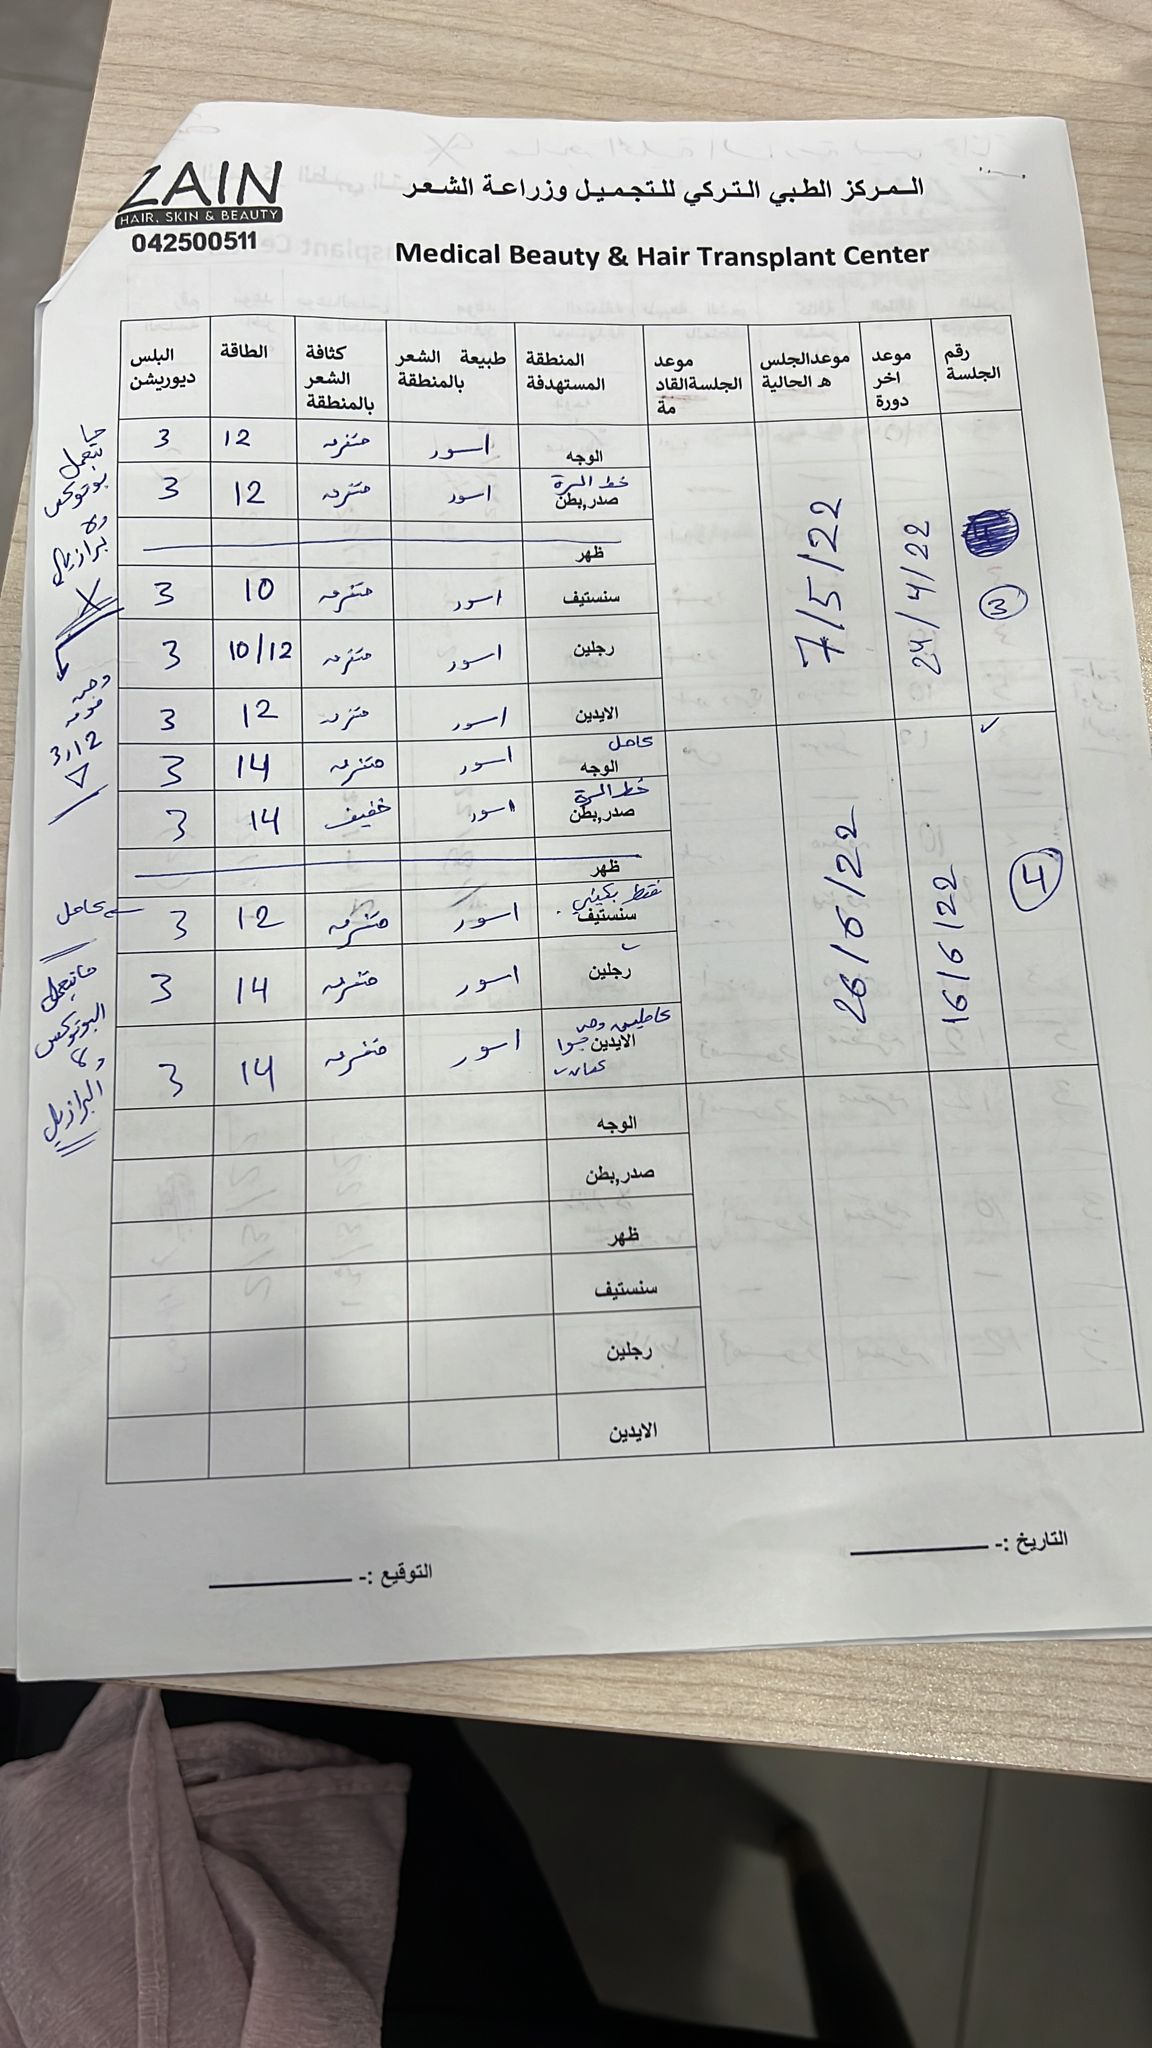 ZAIN
HAIR, SKIN & BEAUTY
042500511
المركز الطبي التركي للتجميل وزراعة الشعر
Medical Beauty & Hair Transplant Center
رقم الجلسة موعد اخر دورة موعدالجلسة الحالية موعد الجلسةالقادمة المنطقة المستهدفة طبيعة الشعر بالمنطقة كثافة الشعر بالمنطقة الطاقة البلس ديوريشن
3 24/4/22 7/5/22
الوجه اسود متفرقه 12 3
خط السرة
صدر,بطن اسود متفرقه 12 3
ظهر
سنستيف اسود متفرقه 10 3
رجلين اسود متفرقه 10/12 3
الايدين اسود متفرقه 12 3
4 16/6/22 26/6/22
كامل
الوجه اسود متفرقه 14 3
خط السرة
صدر,بطن اسود خفيف 14 3
ظهر
فقط بكيني
سنستيف اسود متفرقه 12 3
رجلين اسود متفرقه 14 3
الايدين اسود متفرقه 14 3
الوجه
صدر,بطن
ظهر
سنستيف
رجلين
الايدين
ما
بتعمل
بوتوكس
ولا
برازيلي
3,12
كامل
ما بتعمل
البوتوكس
ولا
البرازيلي
التاريخ :-
التوقيع :-